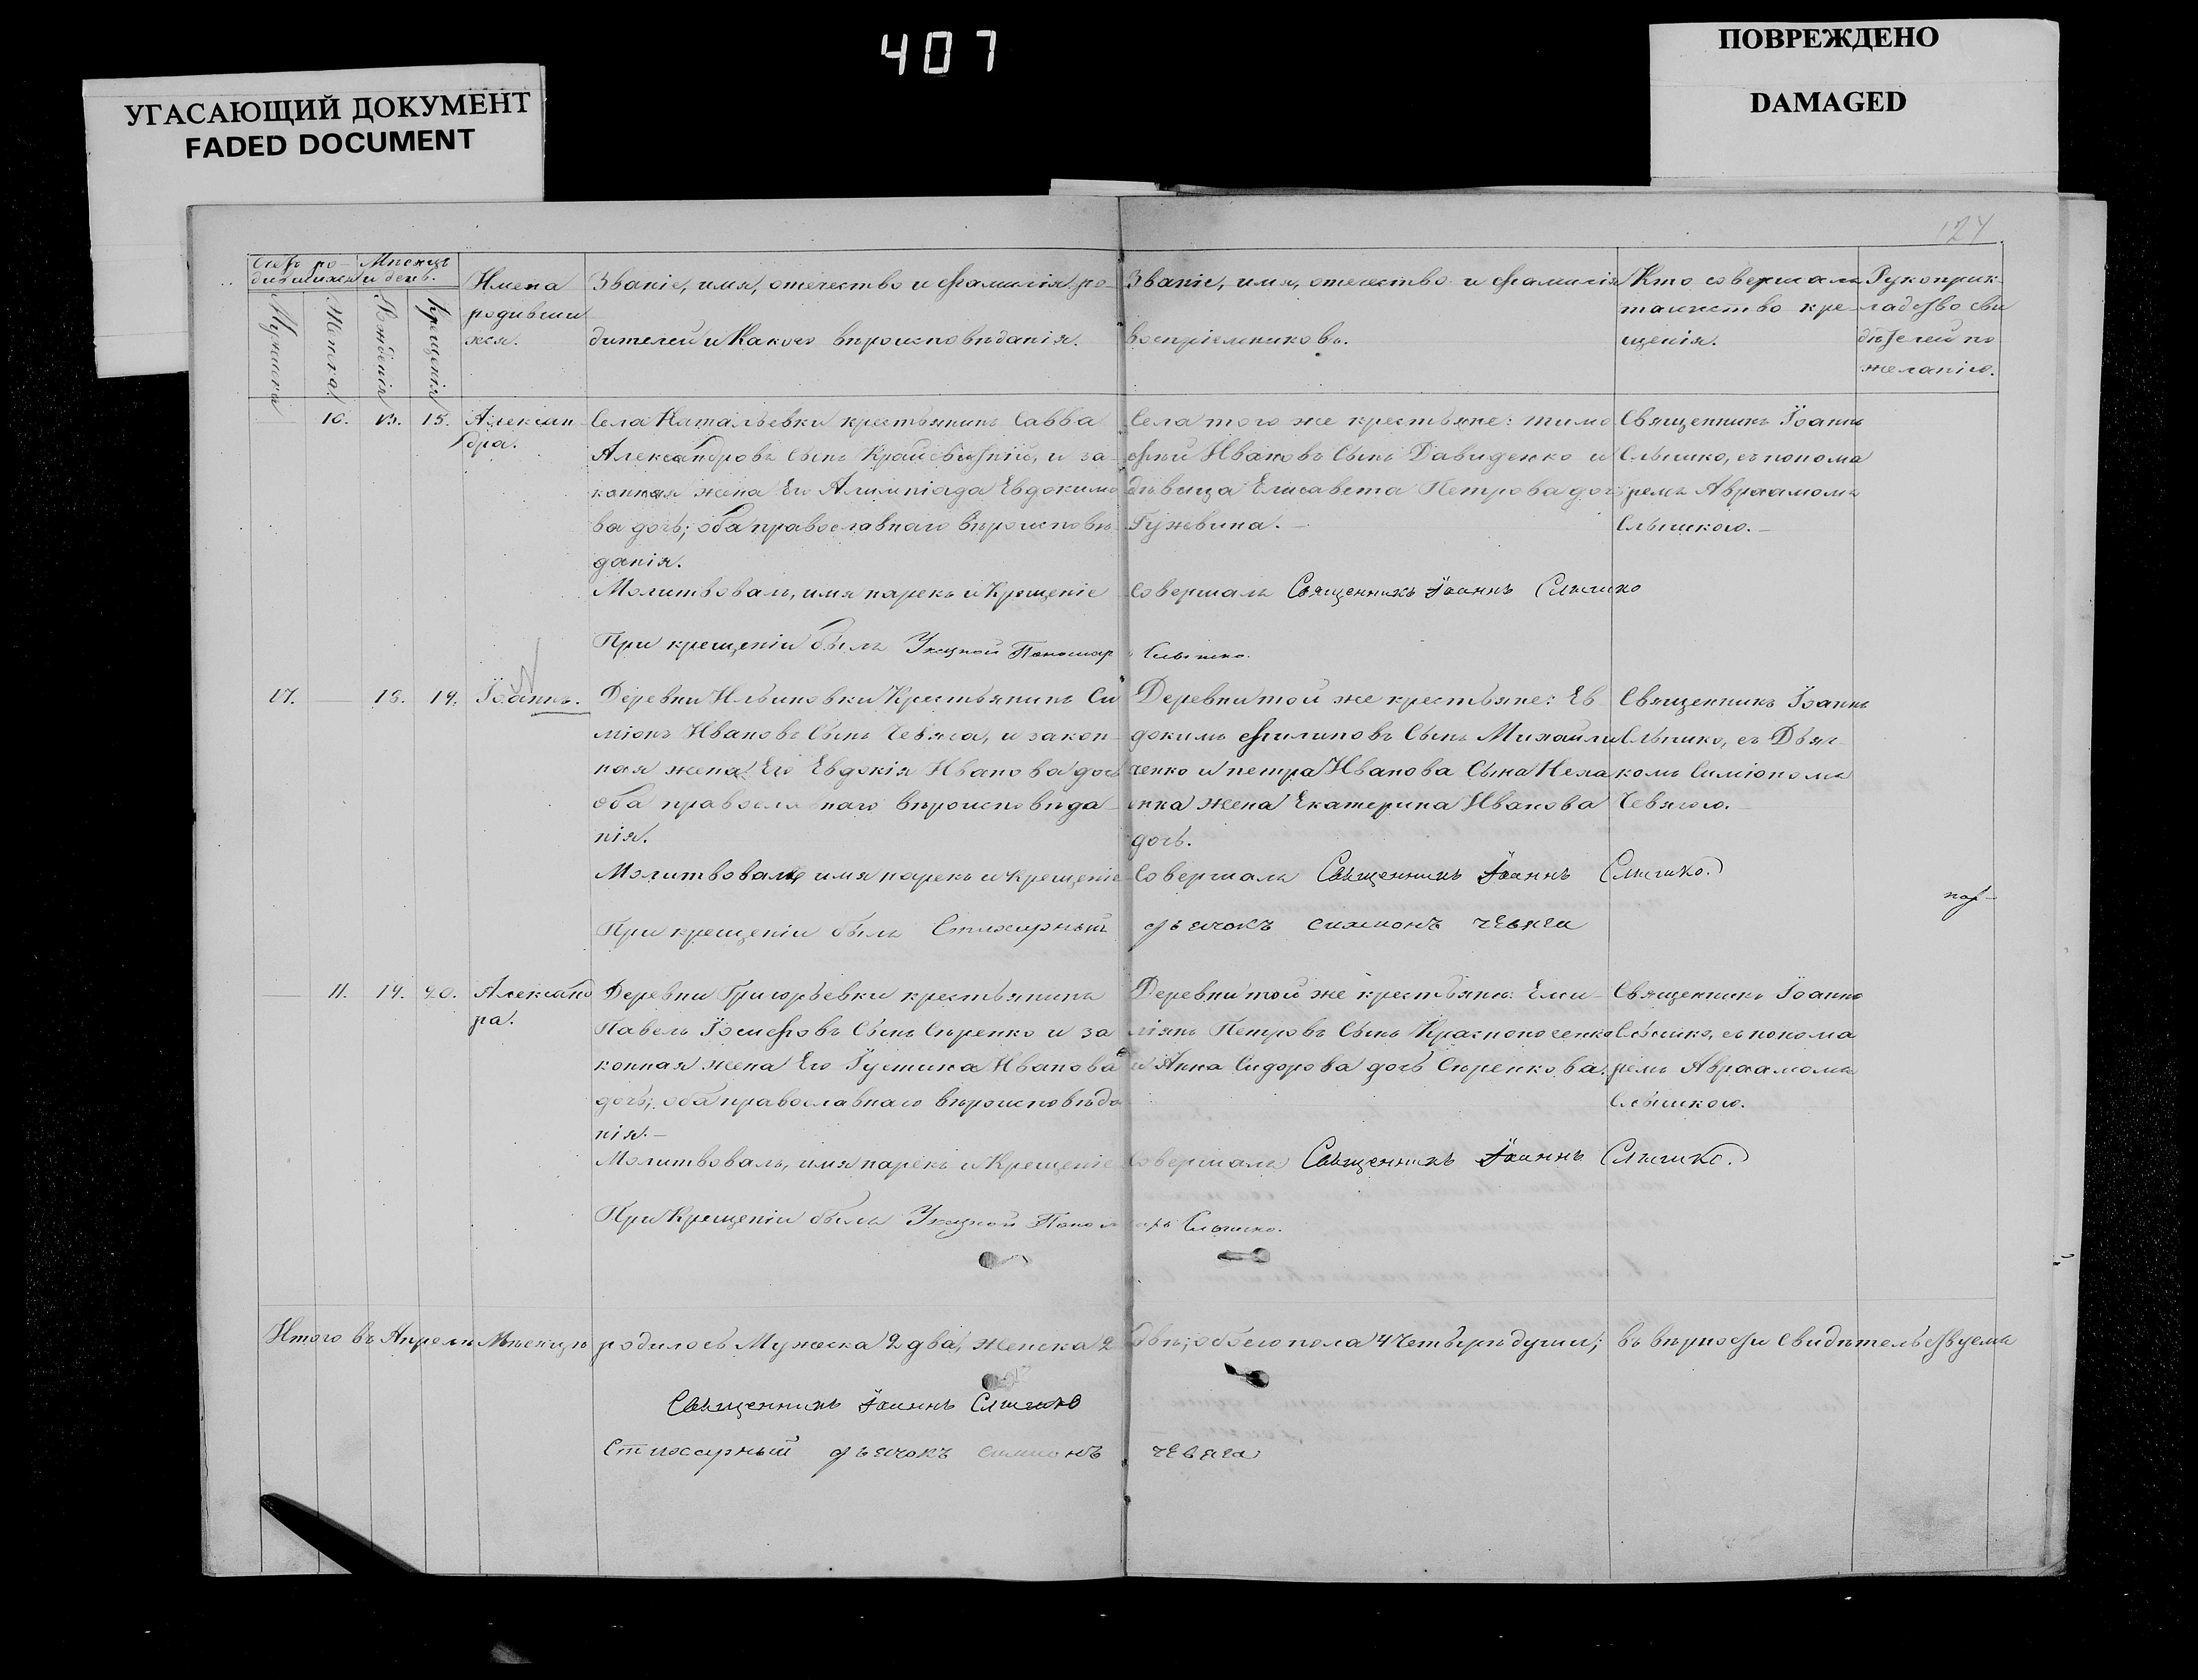 407
УГАСАЮЩИЙ ДОКУМЕНТ
FADED DOCUMENT
ПОВРЕЖДЕНО
DAMAGED
124
Счетъ ро-
дившихся
Мѣсяцъ
и день.
Мужеска
Женска.
Рожденія
Крещенія
Имена
родивши
хся.
Званіе, имя, отечество и фамилія ро-
дителей и Какого вѣроисповѣданія.
Званіе, имя, отечество и фамилія
воспріемниковъ.
Кто совершалъ
таинство кре-
щенія.
Рукоприк-
ладство сви
дѣтелей по
желанію.
10. 13. 15. Алексан
дра.
Села Натальевки крестьянинъ Савва
Александровъ Сынъ, и за-
конная жена Его Алимпіада Евдокимо
ва дочь; оба православнаго вѣроисповѣ-
данія.
Села того же крестьяне: тимо
фѣй Ивановъ Сынъ Давиденко и
дѣвица Елисавета Петрова дочь
Гужвина.
Священникъ Іоаннъ
Слышко, съ понома
ремъ Авраамомъ
Слышкою.
Молитвовалъ, имя нарекъ и Крещеніе совершалъ Священникъ Іоаннъ Слышко
При крещеніи былъ Указной Пономарь Слышко.
17. — 18. 19. Іоаннъ.
Деревни Ильиновки Крестьянинъ Си
міонъ Ивановъ Сынъ Чевяга, и закон-
ная жена Его Евдокія Иванова дочь
оба православнаго вѣроисповѣда-
нія.
Деревни той же крестьяне: Ев-
докимъ Филиповъ Сынъ Михайли
ченко и петра Иванова Сына
жена Екатерина Иванова
дочь.
Священникъ Іоаннъ
Слышко, съ Дьяч-
комъ Симіономъ
Чевягою.
Молитвовалъ имя нарекъ и крещеніе Совершалъ Священникъ Іоаннъ Слышко.
При крещеніи былъ Стихарный дьячокъ симионъ чевяга
— 11. 19. 20. Александ
ра.
Деревни Григорьевки крестьянинъ
Павелъ Іосифовъ Сынъ Сѣренко и за
конная жена Его Іустина Иванова
дочь; оба православнаго вѣроисповѣда
нія.
Деревни той же крестьяне: Еми-
ліянъ Петровъ Сынъ Красноносенко
и Анна Сидорова дочь Сѣренкова.
Священникъ Іоаннъ
Слышко, съ понома
ремъ Авраамомъ
Слышкою.
Молитвовалъ, имя нарекъ и Крещеніе Совершалъ Священникъ Іоаннъ Слышко.
При Крещеніи былъ Указной Пономарь Слышко.
Итого въ Апрелѣ Мѣсяцѣ родилось Мужеска 2 два, женска 2 двѣ; обоего пола 4 Четыре души; въ вѣрности свидѣтельствуемъ
Священникъ Іоаннъ Слышко
Стихарный дьячокъ симионъ чевяга